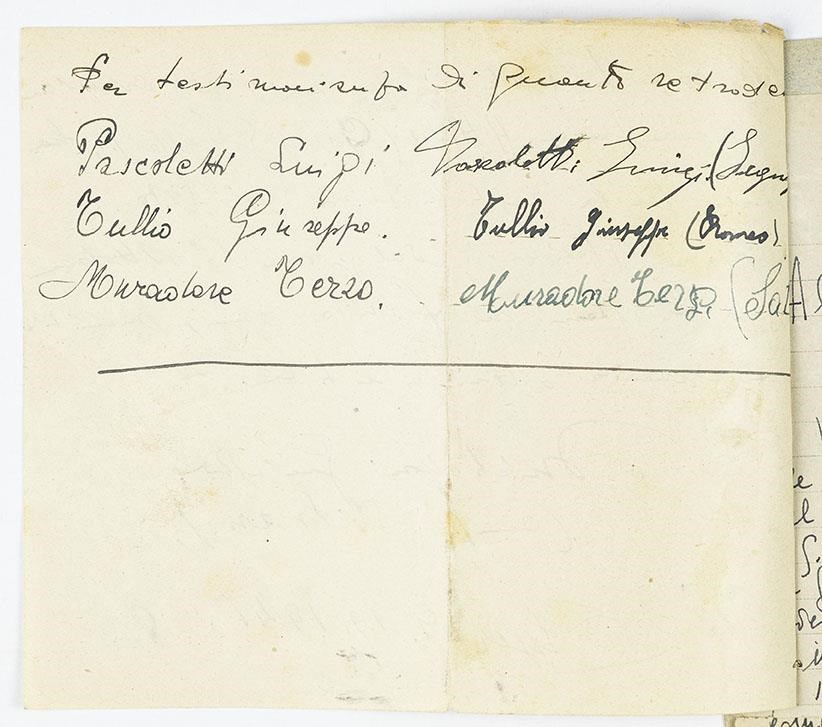 Per testimonianza di quanto retrode
Pascoletti Luigi Pascoletti Luigi (Segu
Tullio Giuseppe. Tullio Giuseppe (Romeo)
Muradore Terzo. Muradore Terzo (